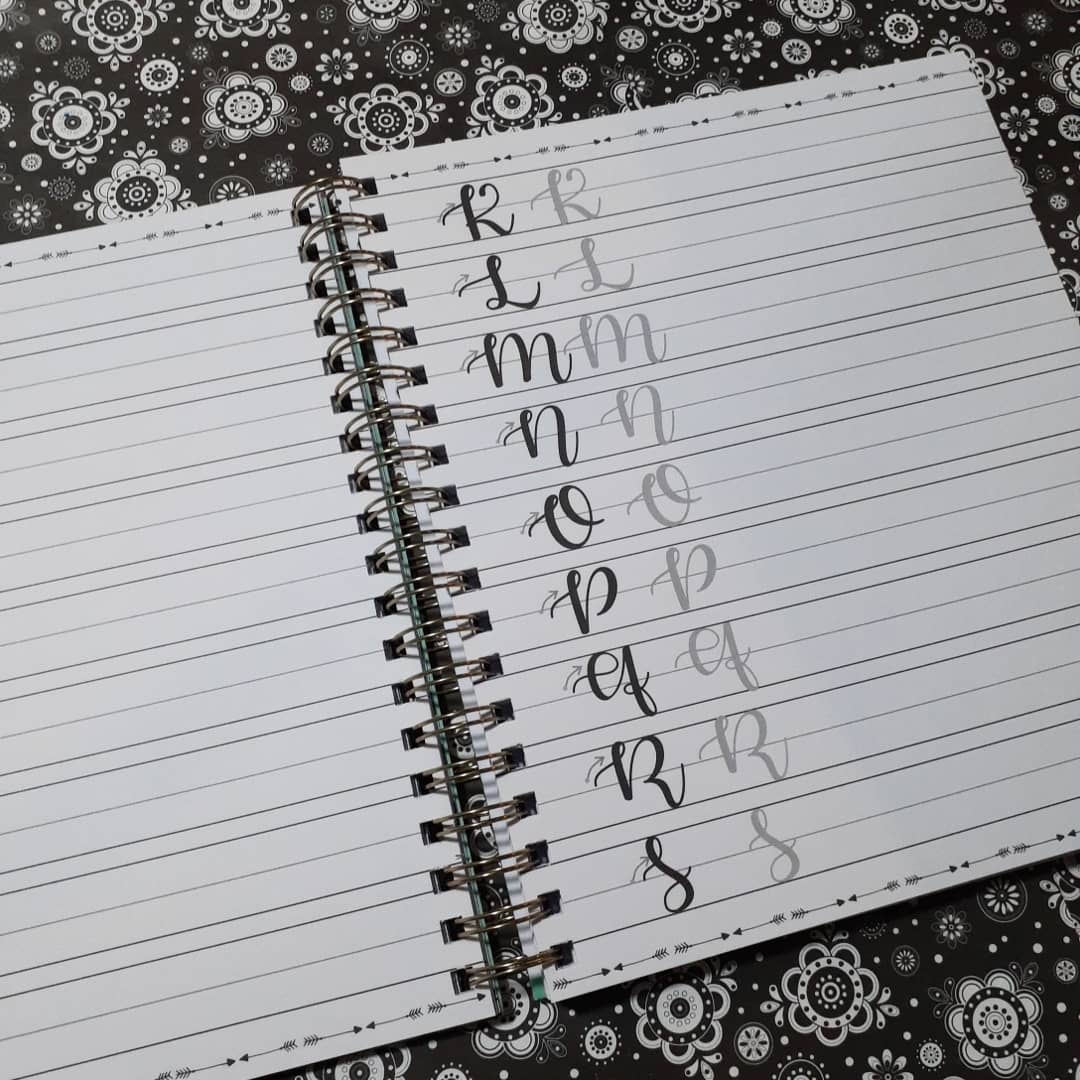 K K
L L
M M
N N
O O
P P
Q Q
R R
S S